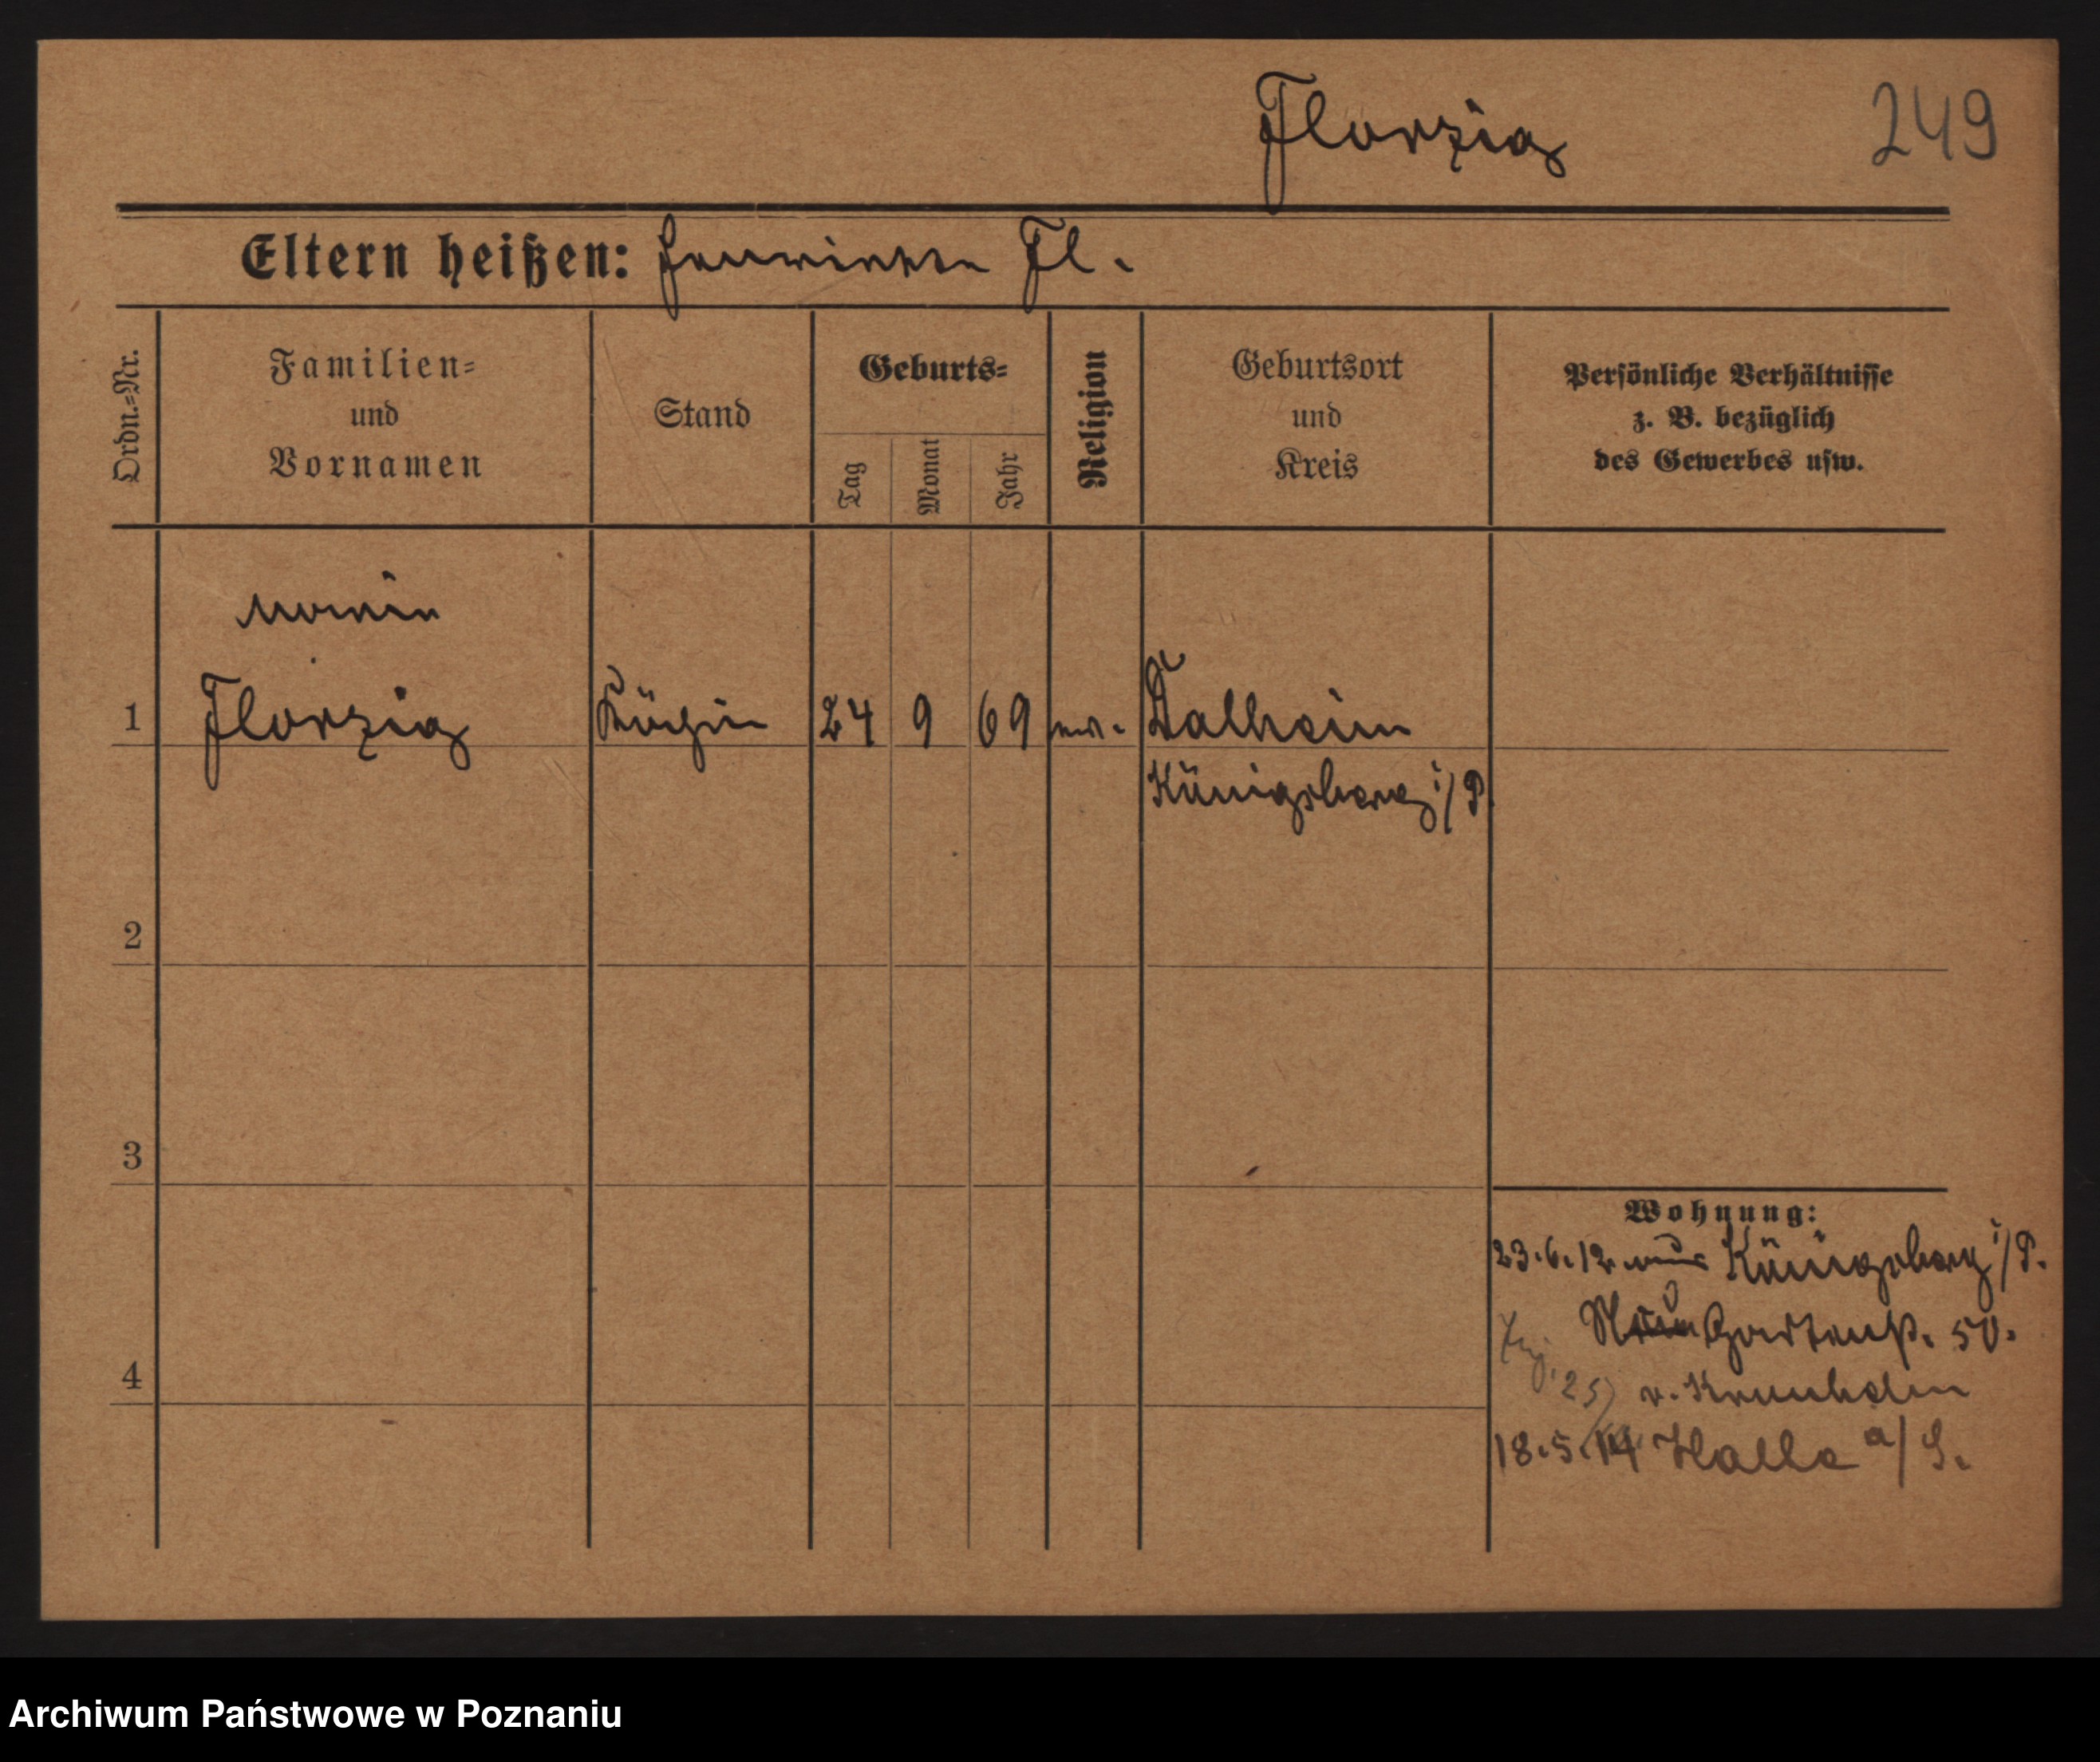 Florzig 249
Eltern heißen: Henriette Fl.
Ordn.=Nr.
Familien=
und
Vornamen
Stand
Geburts=
Tag
Monat
Jahr
Religion
Geburtsort
und
Kreis
Persönliche Verhältnisse
z. B. bezüglich
des Gewerbes usw.
Marie
1 Florzig Köchin 24 9 69 ev. Dalheim
Königsberg i/P.
2
3
4
Wohnung:
23.6.12 aus Königsberg i/P.
Gartenstr. 50.
v.
18.5.14 Halle a/S.
Archiwum Państwowe w Poznaniu